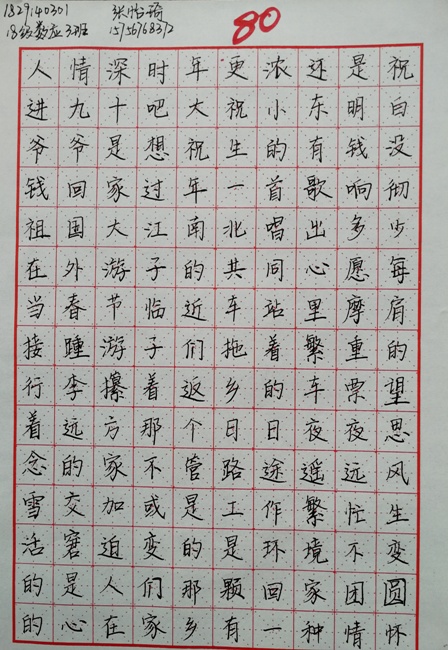 1829140301 张怡琦 80
18级数应3班 15756768372
人情深时年更浓还是祝
进九十吧大祝小东明白
爷爷是想祝生的有钱没
钱回家过年一首歌响彻
祖国大江南北唱出多少
在外游子的共同心愿每
当春节临近车站里摩肩
接踵游子们拖着繁重的
行李攥着返乡的车票望
着远方那个日日夜夜思
念的家不管路途遥远风
雪交加或是工作繁忙生
活窘迫变的是环境不变
的是人们那颗回家团圆
的心在家乡有一种情怀